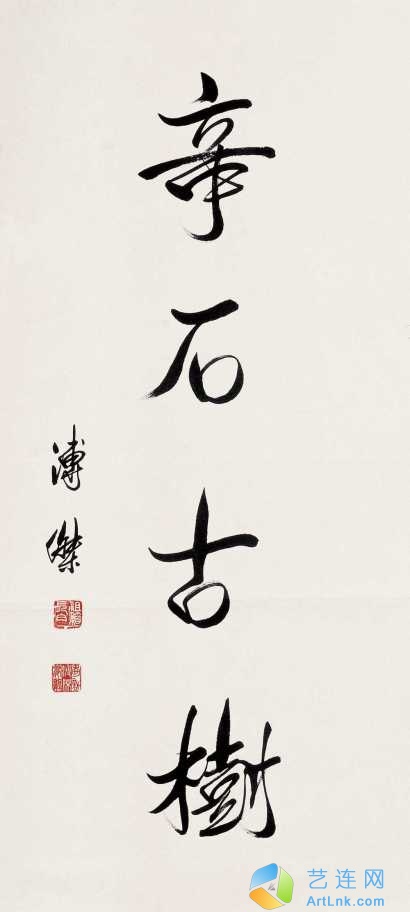 竒石古樹
溥傑
艺连网
ArtLnk.com